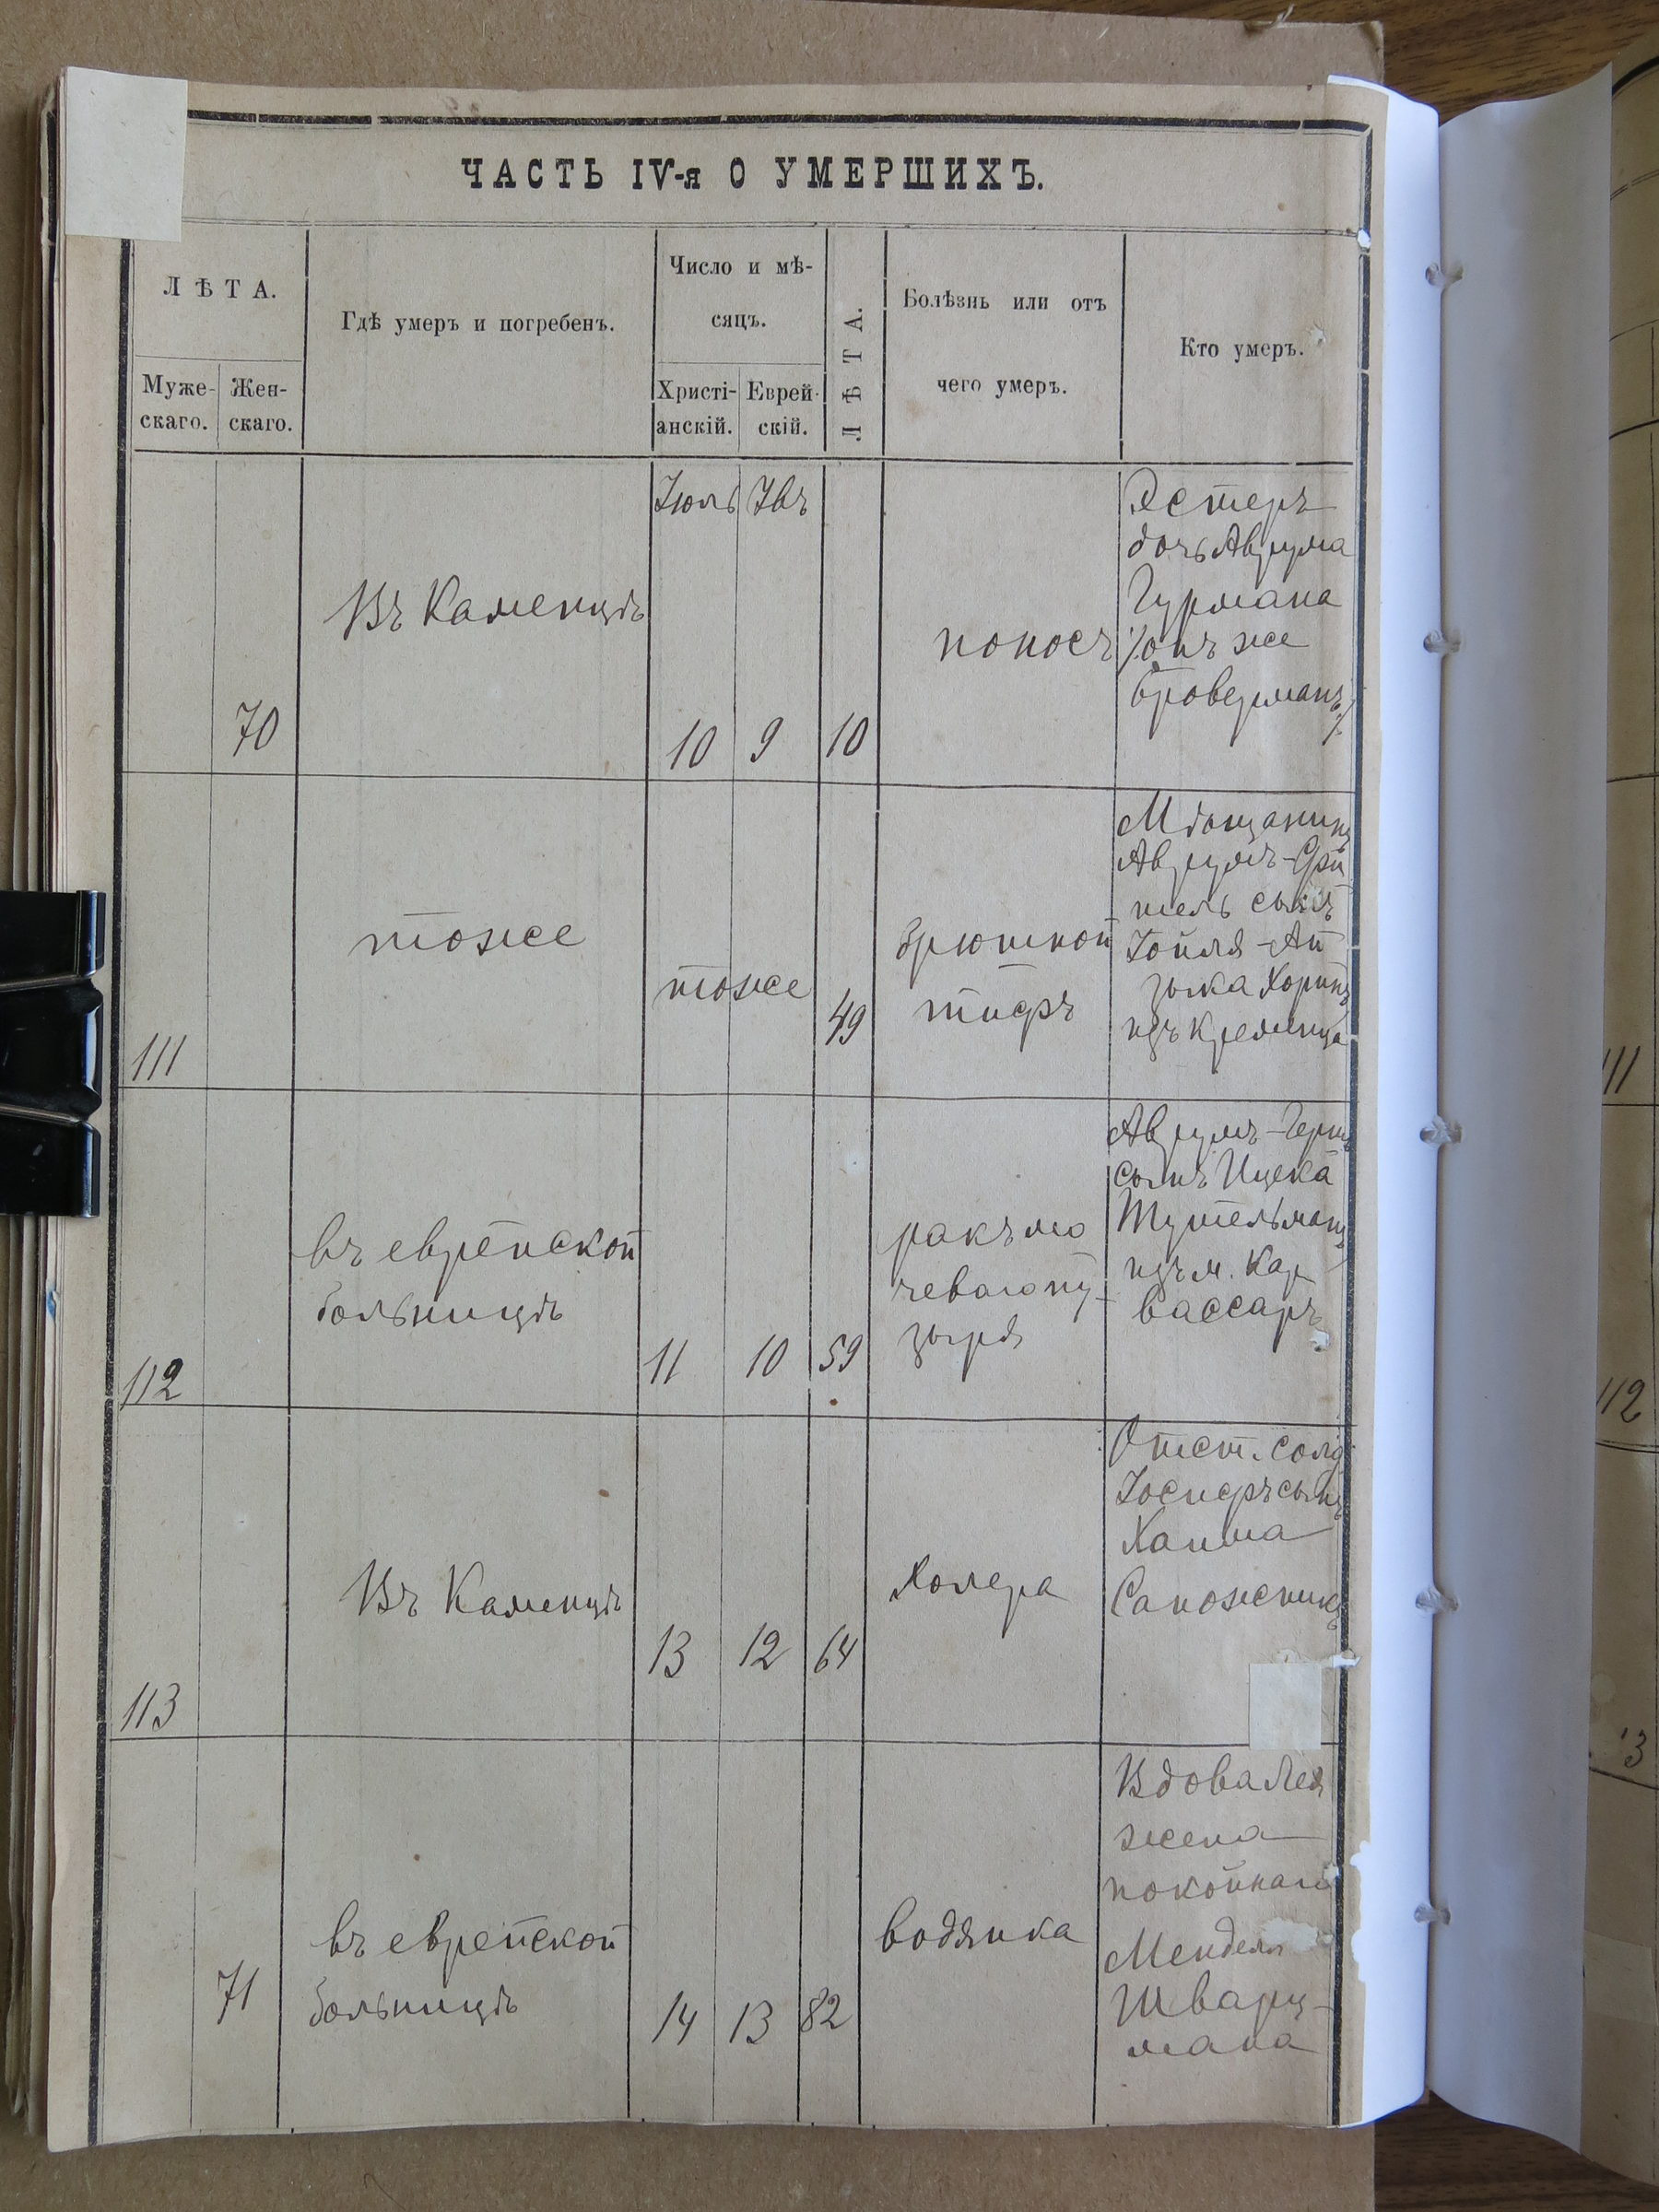 ЧАСТЬ IV-я О УМЕРШИХЪ.
ЛѢТА.
Муже-
скаго.
Жен-
скаго.
Гдѣ умеръ и погребенъ.
Число и мѣ-
сяцъ.
Христі-
анскій.
Еврей-
скій.
ЛѢТА.
Болѣзнь или отъ
чего умеръ.
Кто умеръ.
70
Въ Каменцѣ
Іюль
10
9
10
поносъ
Эстеръ
дочь Аврума
Гурмана
/:онъ же
Броверманъ:/
111
тоже
тоже
49
брюшной
тифъ
Мѣщанинъ
Аврумъ-Фи
шель сынъ
Іойля-Ай
зыка
изъ Кременца
112
въ еврейской
больницѣ
11
10
59
ракъ мо
чеваго пу-
зыря
Аврумъ-Герш
сынъ Ицека
изъ м. Кар
вассаръ
113
Въ Каменцѣ
13
12
64
Холера
Отст. солд
Іосифъ сынъ
Хаима
Сапожникъ
71
въ еврейской
больницѣ
14
13
82
водянка
Вдова Лея
жена
покойнаго
Менделя
Шварц-
мана
111
112
13